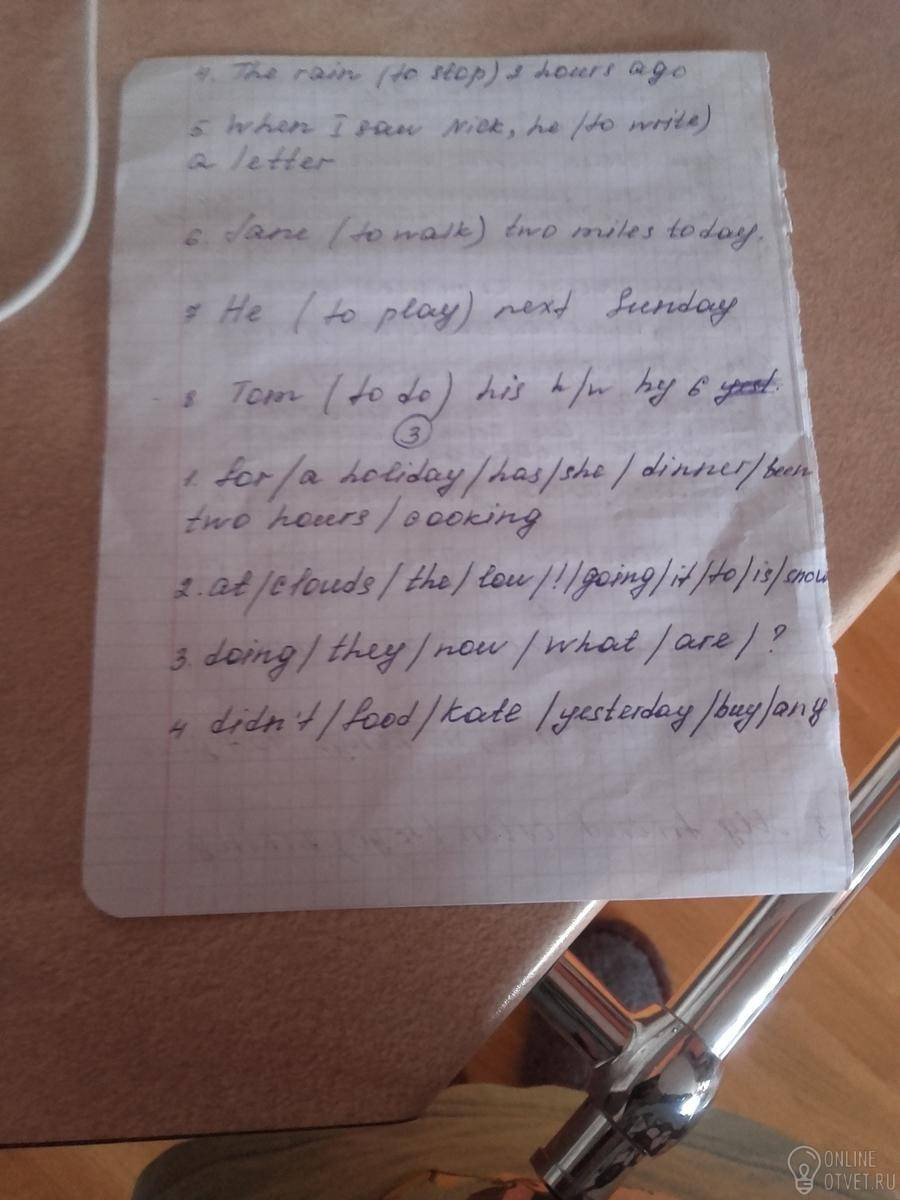 4. The rain (to stop) 2 hours ago
5 When I saw Nick, he (to write)
a letter
6. Jane (to walk) two miles today.
7 He (to play) next Sunday
8 Tom (to do) his h/w by 6 yest.
3
1. for/a holiday/has/she/dinner/been
two hours/cooking
2. at/clouds/the/low/!/going/it/to/is/snow
3. doing/they/now/what/are/?
4 didn't/food/Kate/yesterday/buy/any
ONLINE
OTVET.RU